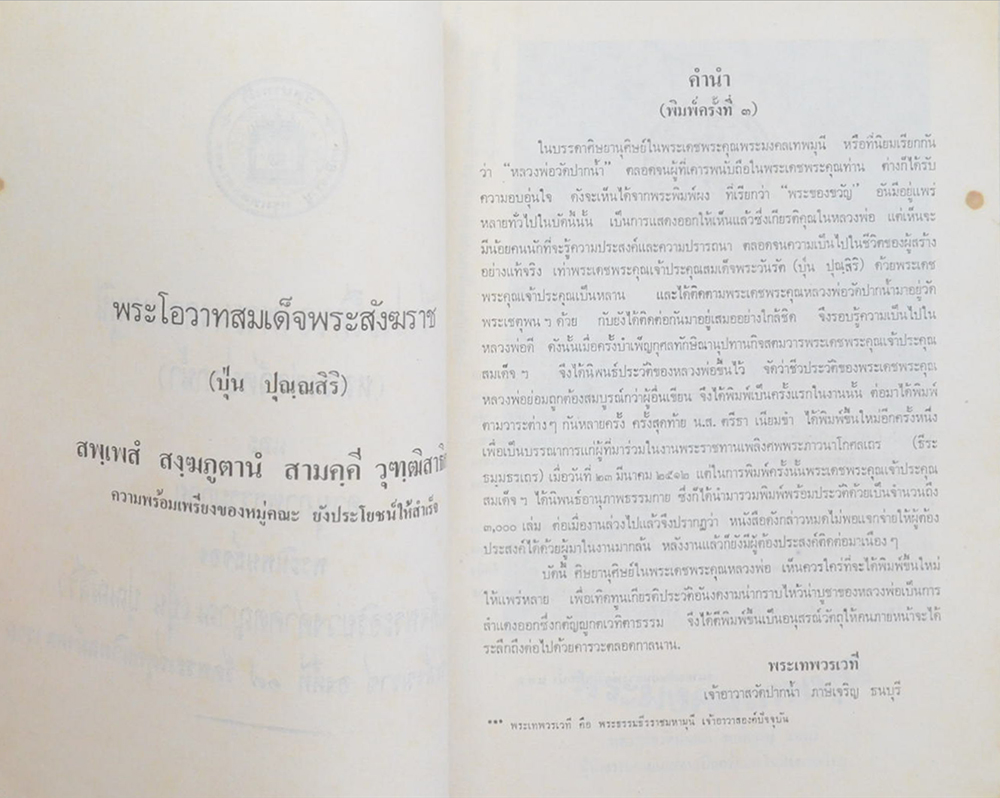 พระโอวาทสมเด็จพระสังฆราช
(ปุ่น ปุณฺณสิริ)
สพฺเพสํ สงฺฆภูตานํ สามคฺคี วุฑฺฒิสาธิ
ความพร้อมเพรียงของหมู่คณะ ยังประโยชน์ให้สำเร็จ
คำนำ
(พิมพ์ครั้งที่ ๓)
ในบรรดาศิษยานุศิษย์ในพระเดชพระคุณพระมงคลเทพมุนี หรือที่นิยมเรียกกัน
ว่า “หลวงพ่อวัดปากน้ำ” ตลอดจนผู้ที่เคารพนับถือในพระเดชพระคุณท่าน ต่างก็ได้รับ
ความอบอุ่นใจ ดังจะเห็นได้จากพระพิมพ์ผง ที่เรียกว่า “พระของขวัญ” อันมีอยู่แพร่
หลายทั่วไปในบัดนี้นั้น เป็นการแสดงออกให้เห็นแล้วซึ่งเกียรติคุณในหลวงพ่อ แต่เห็นจะ
มีน้อยคนนักที่จะรู้ความประสงค์และความปรารถนา ตลอดจนความเป็นไปในชีวิตของผู้สร้าง
อย่างแท้จริง เท่าพระเดชพระคุณเจ้าประคุณสมเด็จพระวันรัต (ปุ่น ปุณฺสิริ) ด้วยพระเดช
พระคุณเจ้าประคุณเป็นหลาน และได้ติดตามพระเดชพระคุณหลวงพ่อวัดปากน้ำมาอยู่วัด
พระเชตุพน ฯ ด้วย กับยังได้ติดต่อกันมาอยู่เสมออย่างใกล้ชิด จึงรอบรู้ความเป็นไปใน
หลวงพ่อดี ดังนั้นเมื่อครั้งบำเพ็ญกุศลทักษิณานุปทานกิจสตมวารพระเดชพระคุณเจ้าประคุณ
สมเด็จ ฯ จึงได้นิพนธ์ประวัติของหลวงพ่อขึ้นไว้ จัดว่าชีวประวัติของพระเดชพระคุณ
หลวงพ่อย่อมถูกต้องสมบูรณ์กว่าผู้อื่นเขียน จึงได้พิมพ์เป็นครั้งแรกในงานนั้น ต่อมาได้พิมพ์
ตามวาระต่าง ๆ กันหลายครั้ง ครั้งสุดท้าย น.ส. ตรีธา เนียมขำ ได้พิมพ์ขึ้นใหม่อีกครั้งหนึ่ง
เพื่อเป็นบรรณาการแก่ผู้ที่มาร่วมในงานพระราชทานเพลิงศพพระภาวนาโกศลเถร (ธีระ
ธมฺมธรเถร) เมื่อวันที่ ๒๓ มีนาคม ๒๕๑๒ แต่ในการพิมพ์ครั้งนั้นพระเดชพระคุณเจ้าประคุณ
สมเด็จ ฯ ได้นิพนธ์อานุภาพธรรมกาย ซึ่งก็ได้นำมารวมพิมพ์พร้อมประวัติด้วยเป็นจำนวนถึง
๓,๐๐๐ เล่ม ต่อเมื่องานล่วงไปแล้วจึงปรากฏว่า หนังสือดังกล่าวหมดไม่พอแจกจ่ายให้ผู้ต้อง
ประสงค์ได้ด้วยผู้มาในงานมากล้น หลังงานแล้วก็ยังมีผู้ต้องประสงค์ติดต่อมาเนือง ๆ
บัดนี้ ศิษยานุศิษย์ในพระเดชพระคุณหลวงพ่อ เห็นควรใคร่ที่จะได้พิมพ์ขึ้นใหม่
ให้แพร่หลาย เพื่อเทิดทูนเกียรติประวัติอันงดงามน่ากราบไหว้น่าบูชาของหลวงพ่อเป็นการ
สำแดงออกซึ่งกตัญญูกตเวทิตาธรรม จึงได้ตีพิมพ์ขึ้นเป็นอนุสรณ์วัตถุให้คนภายหน้าจะได้
ระลึกถึงต่อไปด้วยคารวะตลอดกาลนาน.
พระเทพวรเวที
เจ้าอาวาสวัดปากน้ำ ภาษีเจริญ ธนบุรี
*** พระเทพวรเวที คือ พระธรรมธีรราชมหามุนี เจ้าอาวาสองค์ปัจจุบัน